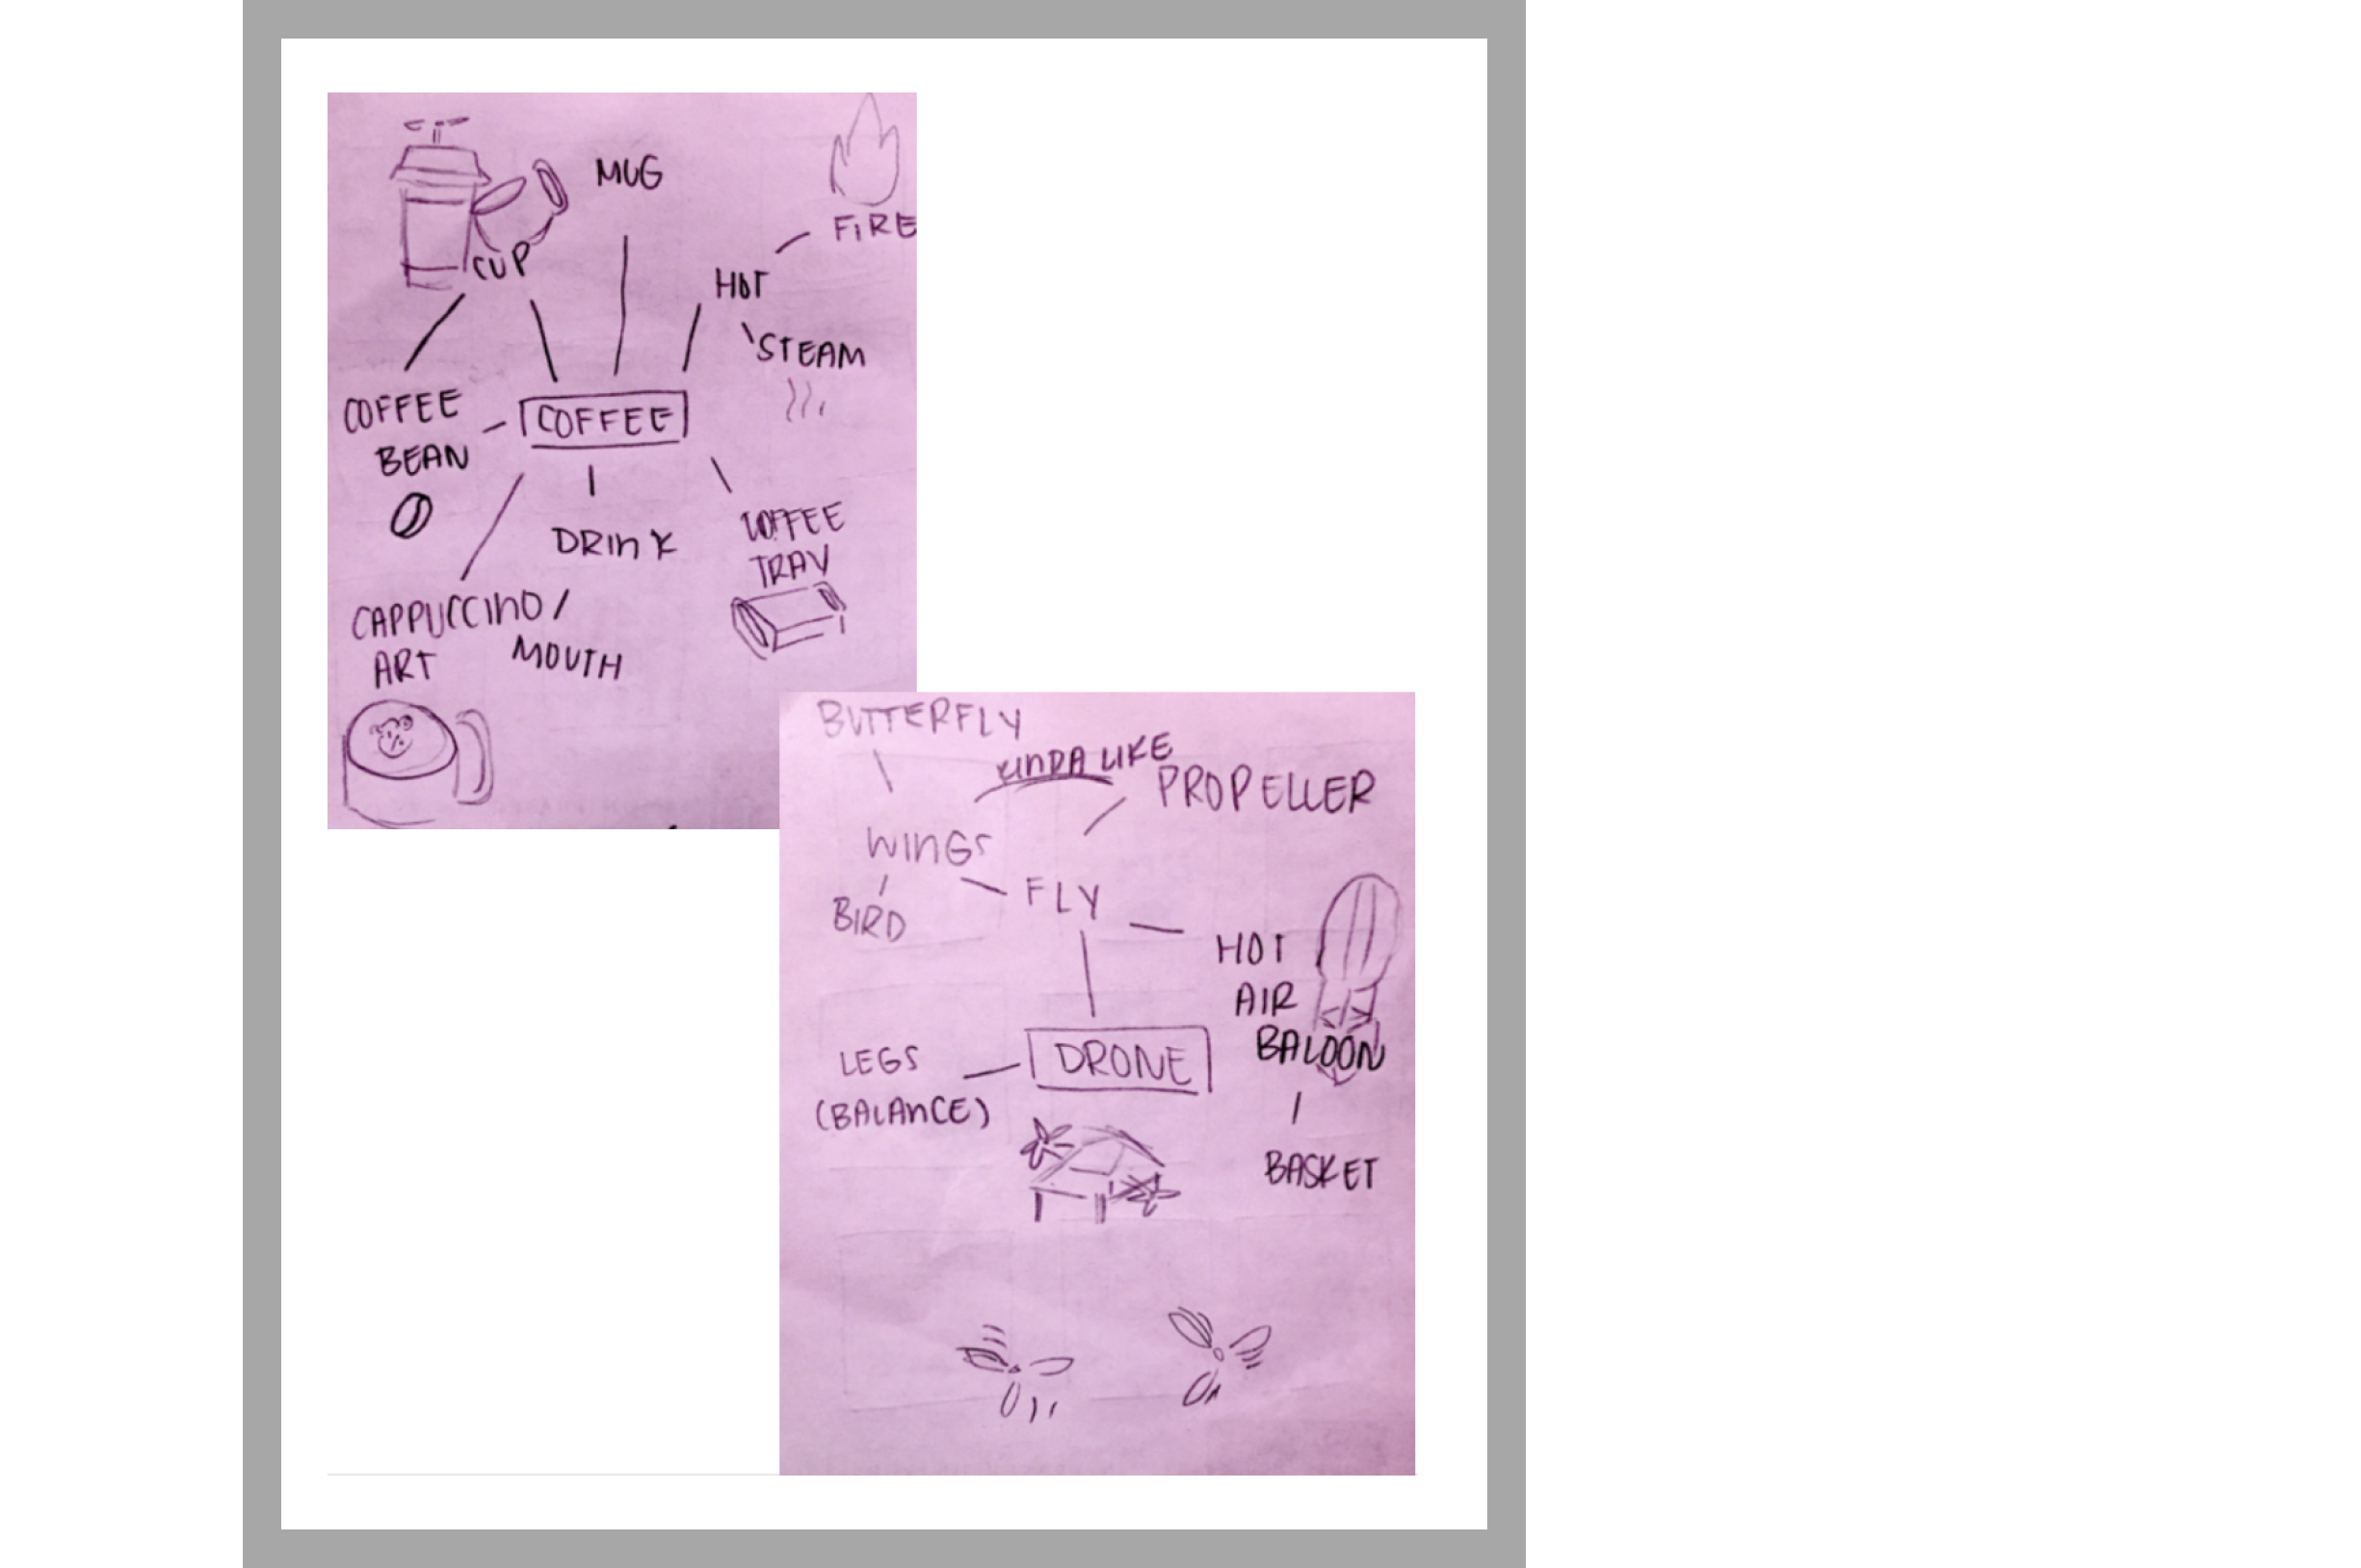 MUG
FIRE
CUP
HOT
STEAM
COFFEE
BEAN
COFFEE
DRINK
COFFEE
TRAY
CAPPUCCINO /
ART
MOUTH
BUTTERFLY
KINDA LIKE
PROPELLER
WINGS
FLY
BIRD
HOT
AIR
BALOON
LEGS
(BALANCE)
DRONE
BASKET